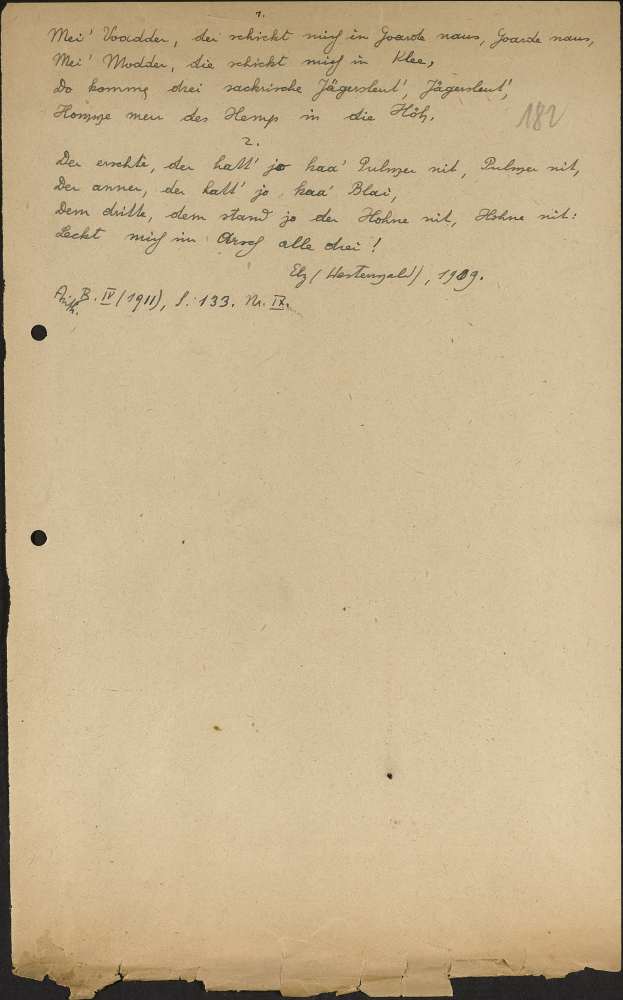 1.
Mei' Voadder, der schickt mich in Goarde naus, Goarde naus,
Mei' Modder, die schickt mich in Klee,
Do komme drei sackrische Jägersleut', Jägersleut',
Homme mer des Hemp in die Höh.
182
2.
Der erschte, der hatt' jo kaa' Pulwer nit, Pulwer nit,
Der anner, der hatt' jo kaa' Blai,
Dem dritte, dem stand jo der Hohne nit, Hohne nit:
Leckt mich im Arsch alle drei!
Elz (Westerwald), 1909.
B. IV (1911), S. 133. Nr. IX.